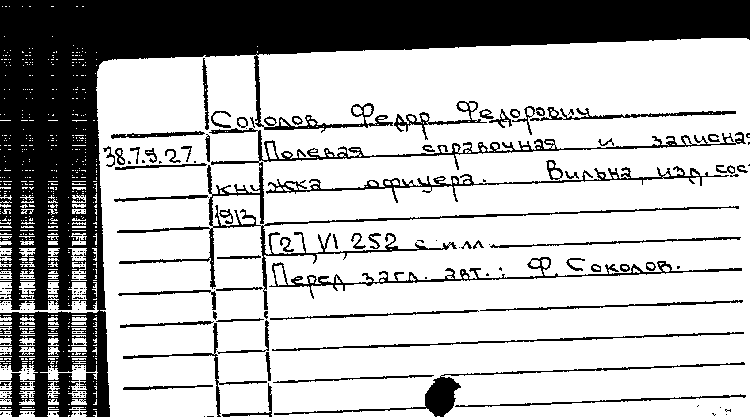 Соколов, Федор Федорович
38.7.9.27 Полевая справочная и записная
книжка офицера. Вильна, изд. сост
1913
[2], VI, 252 с илл.
Перед загл. авт.: Ф. Соколов.